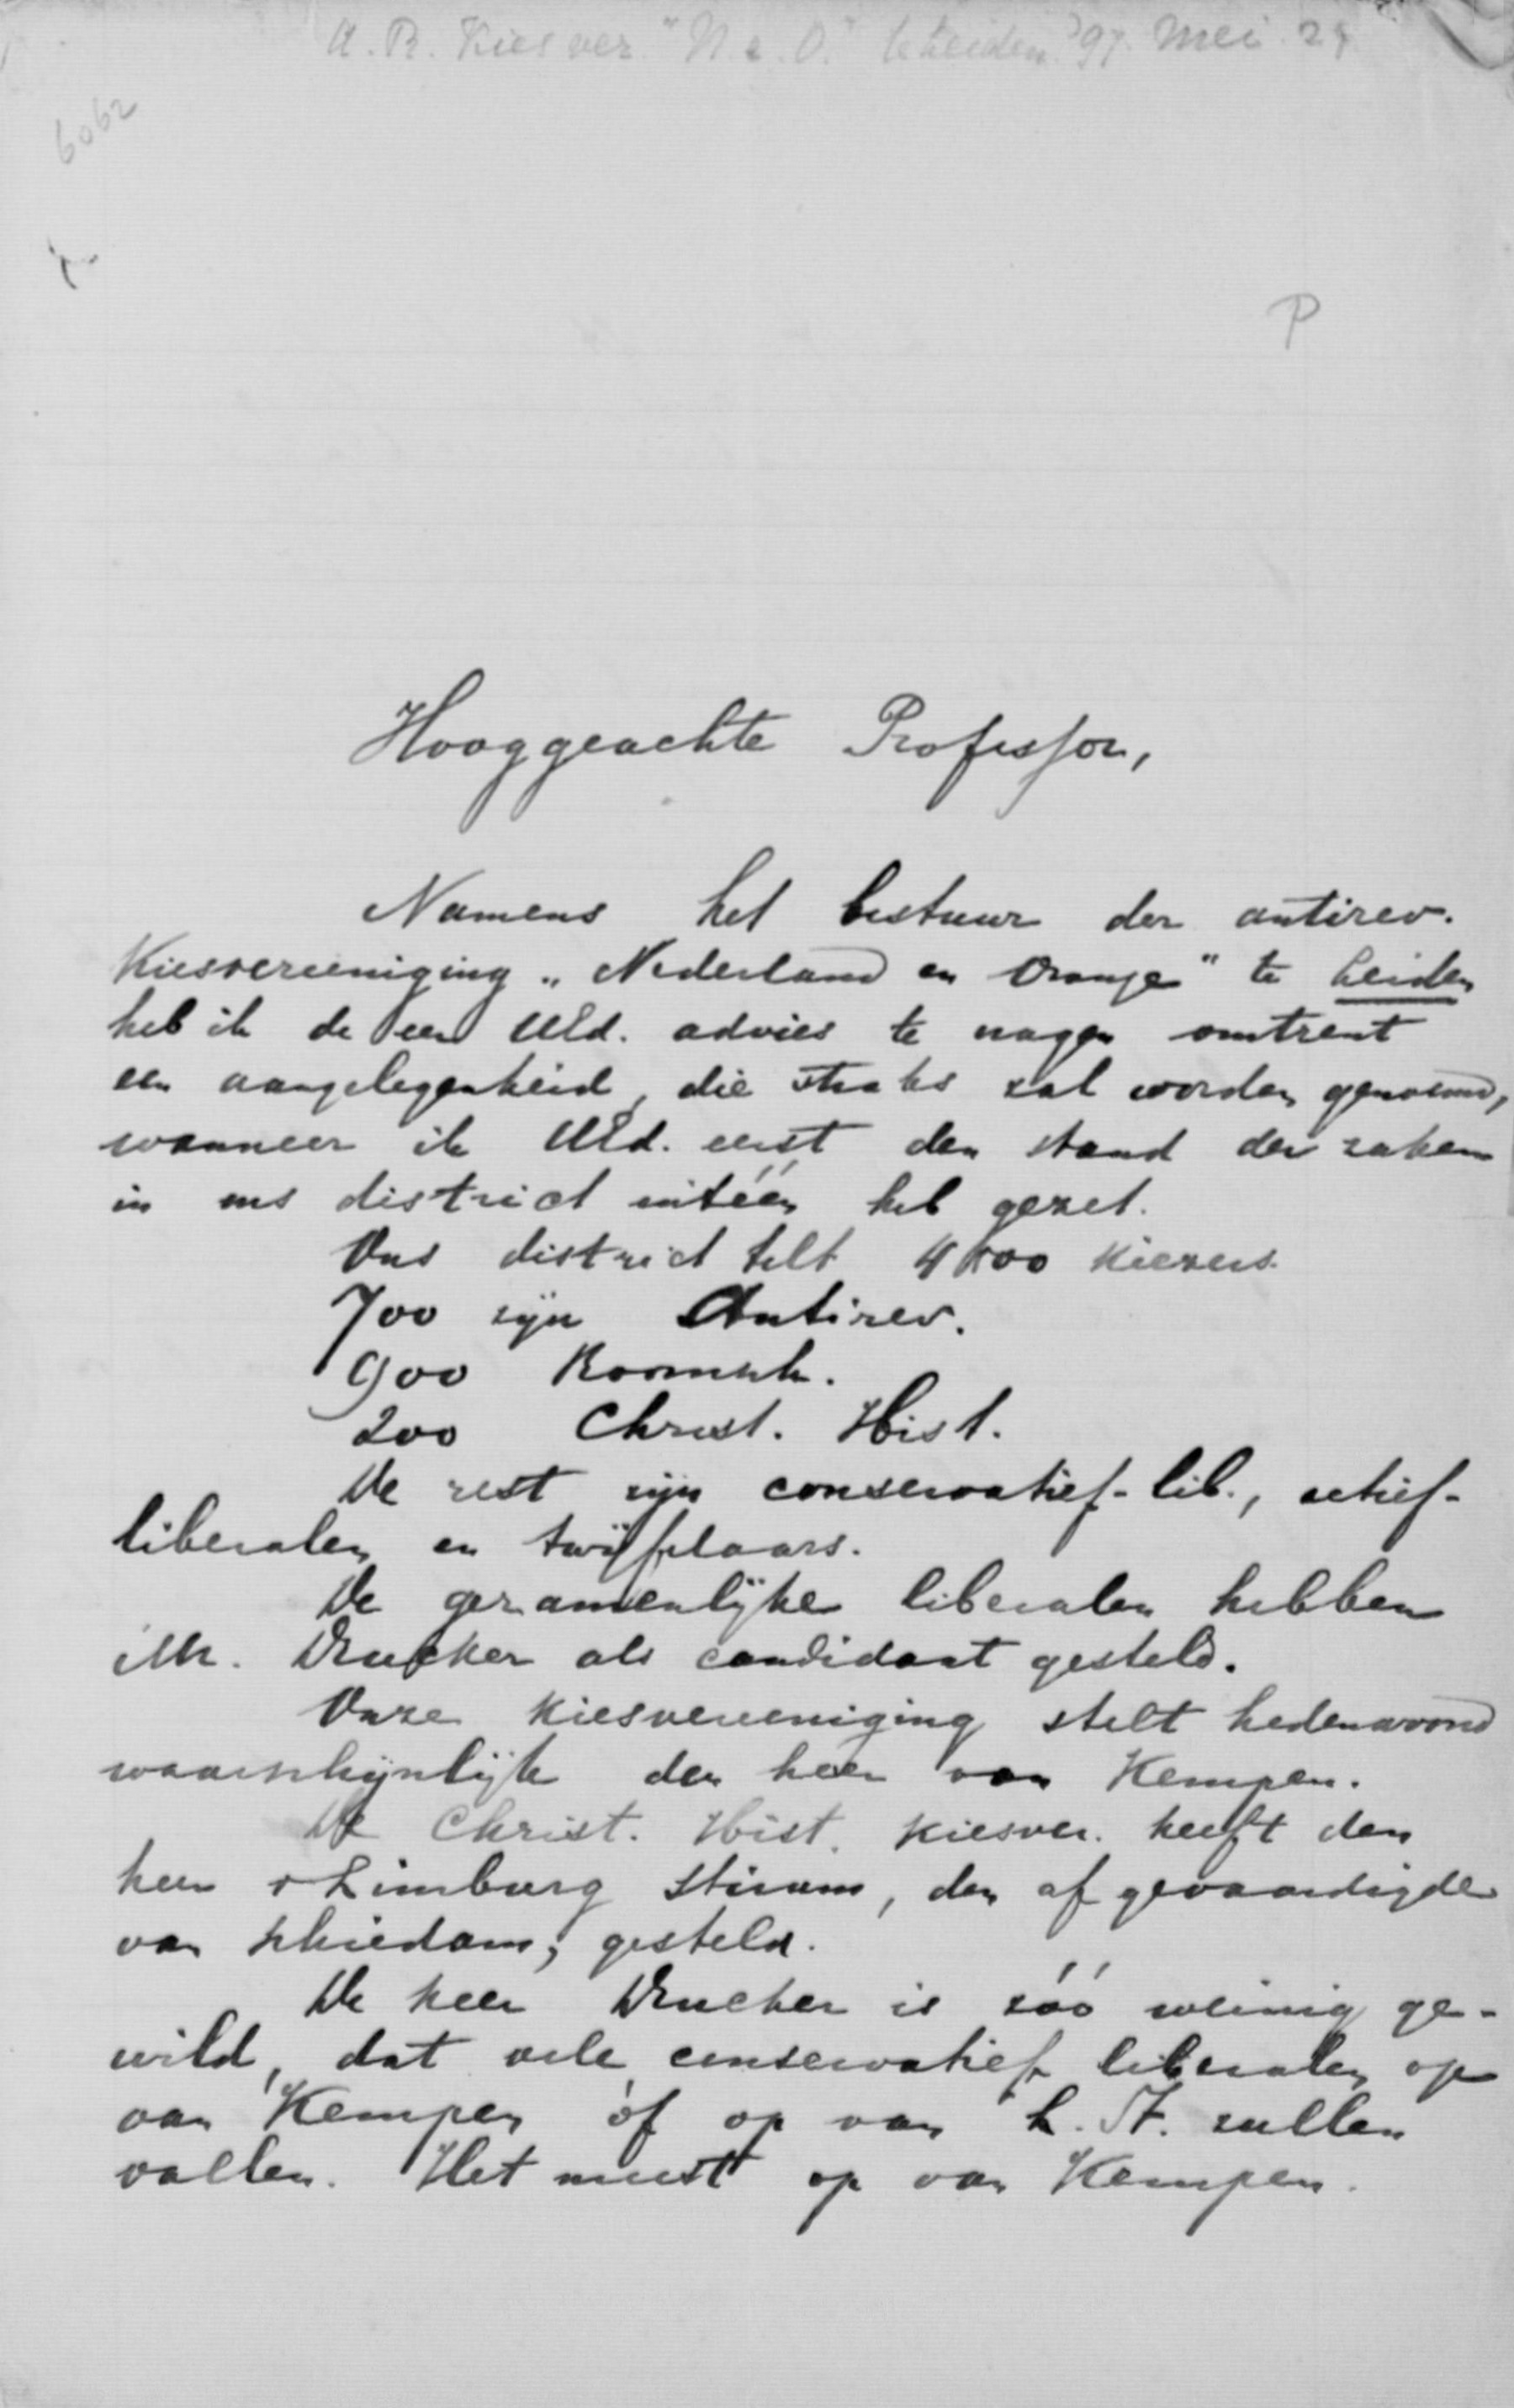 A.R. Kiesver. "N. e. O." Leiden. '97. Mei. 24
6062
P
Hooggeachte Professor,
Namens het bestuur der antirev.
Kiesvereeniging „Nederland en Oranje" te Leiden
heb ik de eer UEd. advies te vragen omtrent
een aangelegenheid, die straks zal worden genoemd,
wanneer ik UEd. eerst den stand der zaken
in ons district uitéén heb gezet.
Ons district telt 4500 kiezers.
700 zijn Antirev.
900 Roomsch.
200 Christ. Hist.
De rest zijn conservatief-lib., actief-
liberalen en twijfelaars.
De gezamenlijke liberalen hebben
Mr. Drucker als candidaat gesteld.
Onze Kiesvereeniging stelt hedenavond
waarschijnlijk den heer van Kempen.
De Christ. Hist. Kiesver. heeft den
heer v Limburg Stirum, den afgevaardigde
van Schiedam, gesteld.
De heer Drucker is zóó weinig ge-
wild, dat vele conservatief liberalen op
van Kempen óf op van L. St. zullen
vallen. Het meest op van Kempen.